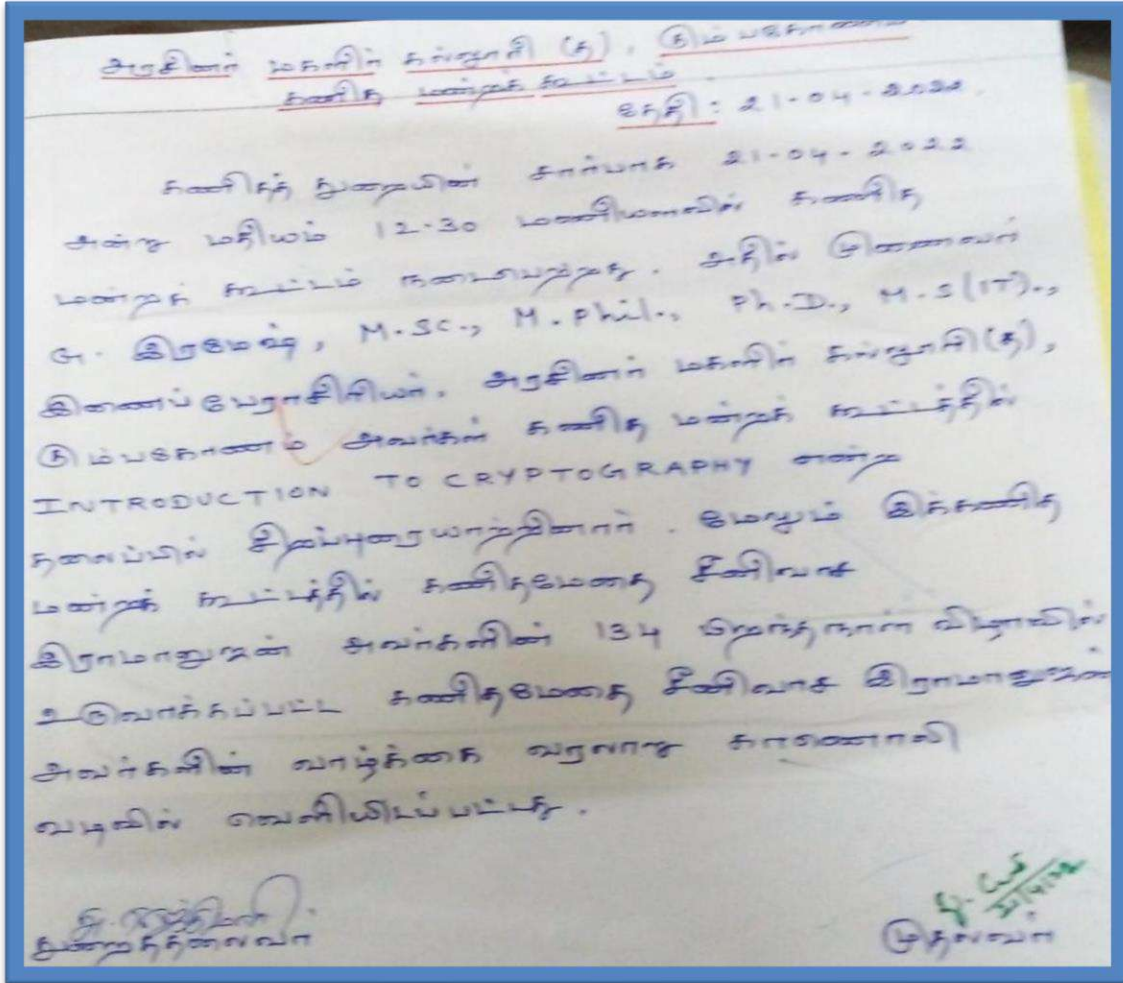 அரசினர் மகளிர் கல்லூரி (த), கும்பகோணம்
கணித மன்றக் கூட்டம்
தேதி : 21-04-2022.
கணிதத் துறையின் சார்பாக 21-04-2022
அன்று மதியம் 12.30 மணியளவில் கணித
மன்றக் கூட்டம் நடைபெற்றது. அதில் முனைவர்
G. இரமேஷ், M.Sc., M.Phil., Ph.D., M.S(IT).,
இணைப்பேராசிரியர், அரசினர் மகளிர் கல்லூரி(த),
கும்பகோணம் அவர்கள் கணித மன்றக் கூட்டத்தில்
INTRODUCTION TO CRYPTOGRAPHY என்ற
தலைப்பில் சிறப்புரையாற்றினார். மேலும் இக்கணித
மன்றக் கூட்டத்தில் கணிதமேதை சீனிவாச
இராமானுஜன் அவர்களின் 134 பிறந்தநாள் விழாவில்
உருவாக்கப்பட்ட கணிதமேதை சீனிவாச இராமானுஜன்
அவர்களின் வாழ்க்கை வரலாறு காணொலி
வடிவில் வெளியிடப்பட்டது.
துறைத்தலைவர்
முதல்வர்